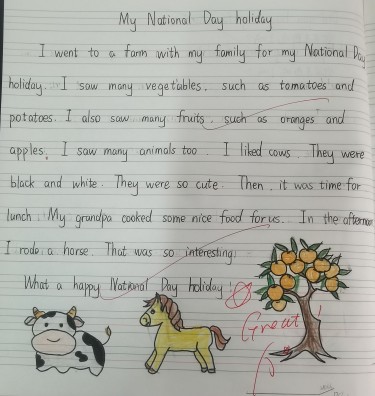 My National Day holiday
I went to a farm with my family for my National Day
holiday. I saw many vegetables, such as tomatoes and
potatoes. I also saw many fruits, such as oranges and
apples, I saw many animals too. I liked cows. They were
black and white. They were so cute. Then, it was time for
lunch. My grandpa cooked some nice food for us. In the afternoon
I rode a horse. That was so interesting!
What a happy National Day holiday!
Great!